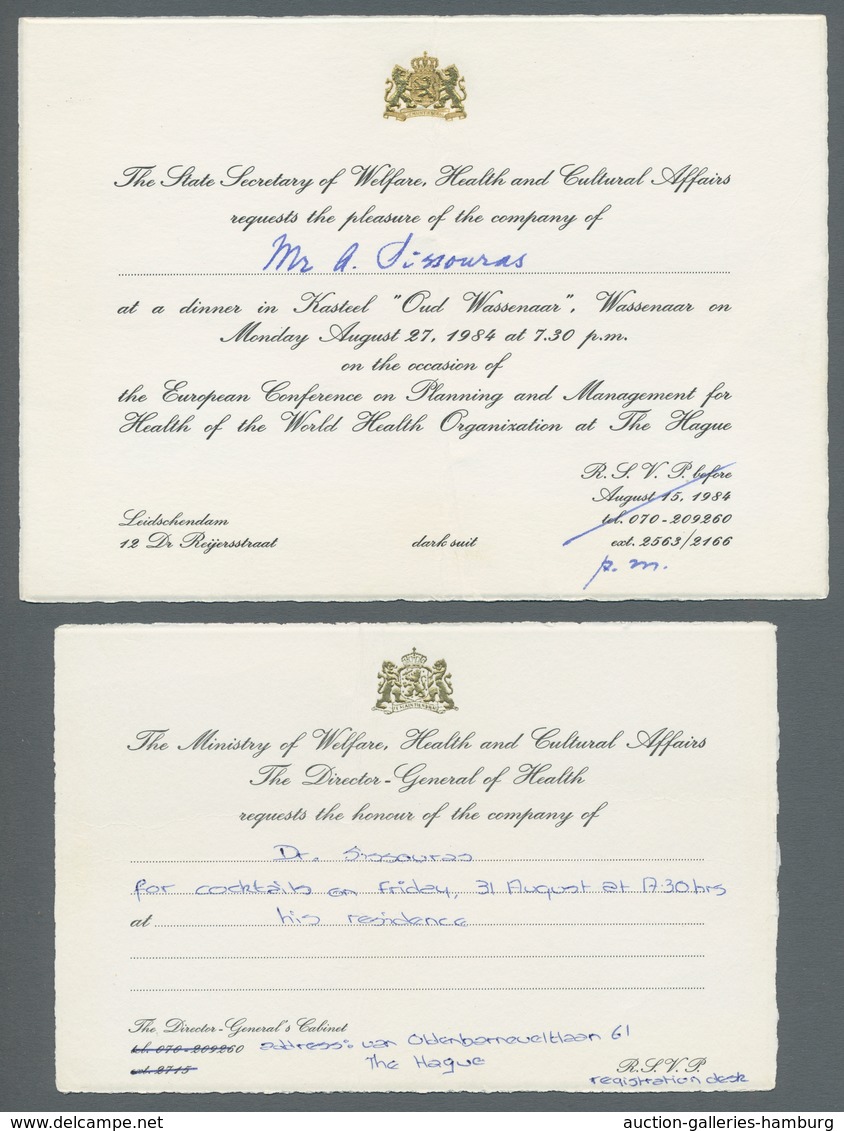 The State Secretary of Welfare, Health and Cultural Affairs
requests the pleasure of the company of
Mr A. Sissouras
at a dinner in Kasteel "Oud Wassenaar", Wassenaar on
Monday August 27, 1984 at 7.30 p.m.
on the occasion of
the European Conference on Planning and Management for
Health of the World Health Organization at The Hague
R.S.V.P. before
August 15, 1984
tel. 070-209260
ext. 2563/2166
p.m.
Leidschendam
12 Dr Reijersstraat
dark suit
The Ministry of Welfare, Health and Cultural Affairs
The Director-General of Health
requests the honour of the company of
Dr. Sissouras
for cocktails on Friday, 31 August at 17.30 hrs
at his residence
The Director-General's Cabinet
tel. 070-209260
ext. 2715
address: van Oldenbarneveltlaan 61
The Hague
R.S.V.P.
registration desk
delcampe.net
auction-galleries-hamburg